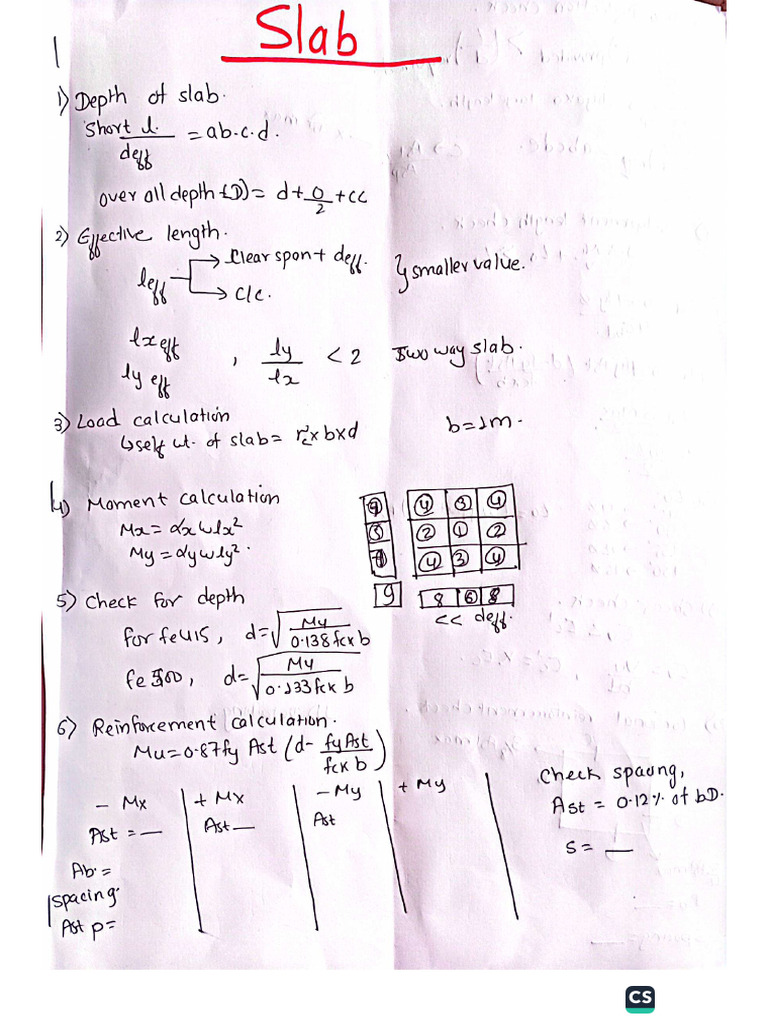 1
Slab
1) Depth of slab.
Short l. / deff = ab.c.d.
over all depth (D) = d + Ø/2 + cc
2) Effective length.
leff → clear span + deff.
→ c/c.
} smaller value.
lx eff
ly eff , ly/lx < 2 Two way slab.
3) Load calculation
↳ self wt. of slab = rc × b × d b = 1m.
4) Moment calculation
Mx = αx wlx²
My = αy wly².
4 3 4
2 1 2
4 3 4
5
9 8 6 8
5) Check for depth
<< deff.
for fe415, d = √(Mu / 0.138 fck b)
fe 500, d = √(Mu / 0.133 fck b)
6) Reinforcement calculation.
Mu = 0.87 fy Ast (d - fy Ast / fck b)
- Mx + Mx - My + My
Ast = — Ast — Ast
Ab. =
spacing.
Ast p =
Check spacing,
Ast = 0.12% of bD.
s = —
CS